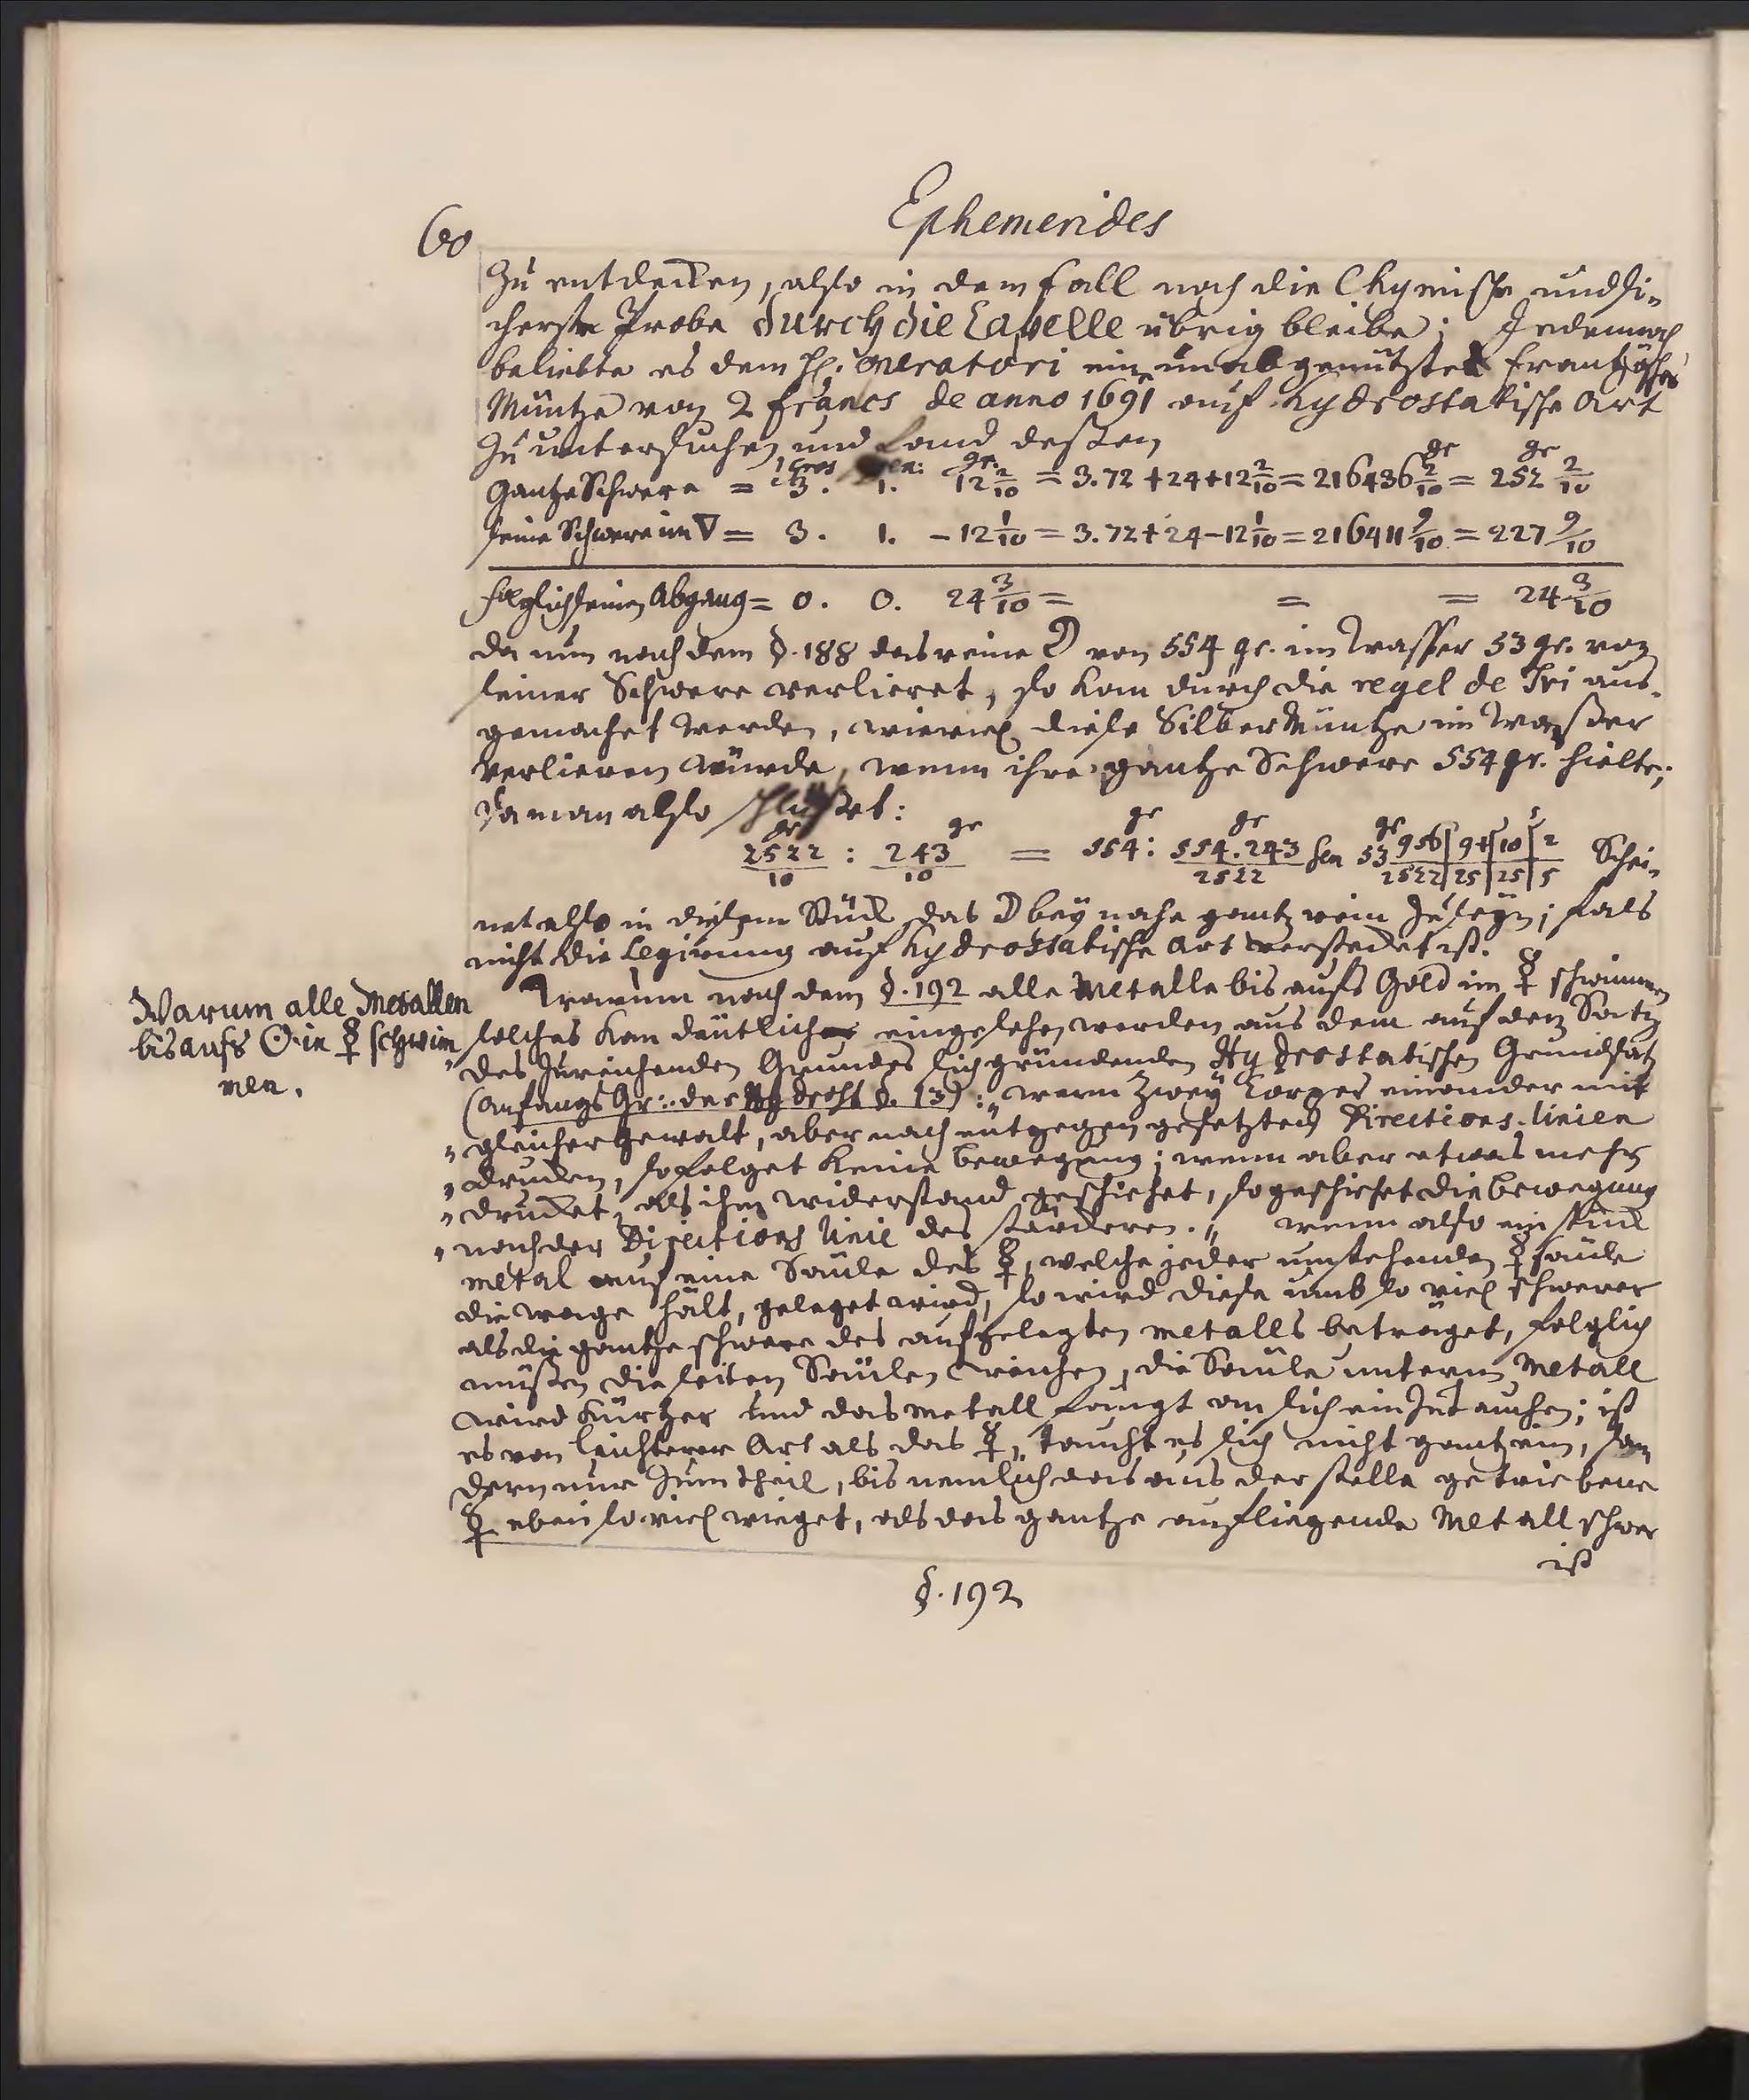 Ephemerides
60
Zu entdecken, also in dem fall noch die Chymische und si-
cherste Probe durch die Capelle übrig bleibe; Jedennoch
beliebte es dem H. Operatori ein unabgenütztes Frantzösches
Müntze von 2 francs de anno 1691 auf hydrostatische Art
zu untersuchen und fand deßen
1 Gros gr. gr gr
Gantze Schwere = 3. 1. 12 2/10 = 3.72 + 24 + 12 2/10 = 216+36 2/10 = 252 2/10
seine Schwere im ▽ = 3. 1. - 12 1/10 = 3.72 + 24 - 12 1/10 = 216+11 9/10 = 227 9/10
folglich seinen Abgang = 0. 0. 24 3/10 = = = 24 3/10
da nun nach dem §. 188 das reine ☽ von 554 gr. im Wasser 53 gr. von
seiner Schwere verlieret, so kan durch die regel de Tri aus-
gemachet werden, wieviel diese Silber Müntze im Waßer
verlieren würde, wenn ihre gantze Schwere 554 gr. hielte;
da man also schlüßet:
gr gr gr gr gr
2522/10 : 243/10 = 554 : 554.243/2522 seu 53 956/2522 | 9+/25 | 10/25 | 2/5 Schei-
net also in diesem Stück das ☽ bey nahe gantz rein zu seyn; fals
nicht die Legirung auf hydrostatische Art verstecket ist.
Warum alle Metallen
bis aufs ☉ in ☿ schwim
men.
Warum nach dem §. 192 alle Metalle bis aufs Gold im ☿ schwimmen
solches kan deutlich eingesehen werden aus dem auf den Satz
des zureichenden Grundes sich gründenden Hydrostatischen Grundsatz
(Anfangs Gr: der Hydrost §. 13): „wenn zwey Corper einander mit
„gleicher Gewalt, aber nach entgegen gesetzten Directions-linien
„drucken, so folget keine bewegung; wenn aber etwas mehr
„drucket, als ihm widerstand geschiehet, so geschiehet die bewegung
„nach der Directions linie des stärckeren.„ wenn also ein stück
metal auf eine Säule des ☿, welche jeder umstehenden ☿ säule
die wage hält, geleget wird, so wird diese umb so viel schwerer
als die gantze schwere des aufgelegten metalls beträget, folglich
müßen die seiten Säulen weichen, die Säule unterm Metall
wird kürtzer und das metall fängt an sich einzutauchen; ist
es von leichterer Art als das ☿, taucht es sich nicht gantz ein, son
dern nur zum theil, bis nemlich das aus der stelle getriebene
☿ eben so viel wieget, als das gantze aufliegende Metall schwer
ist
§. 192